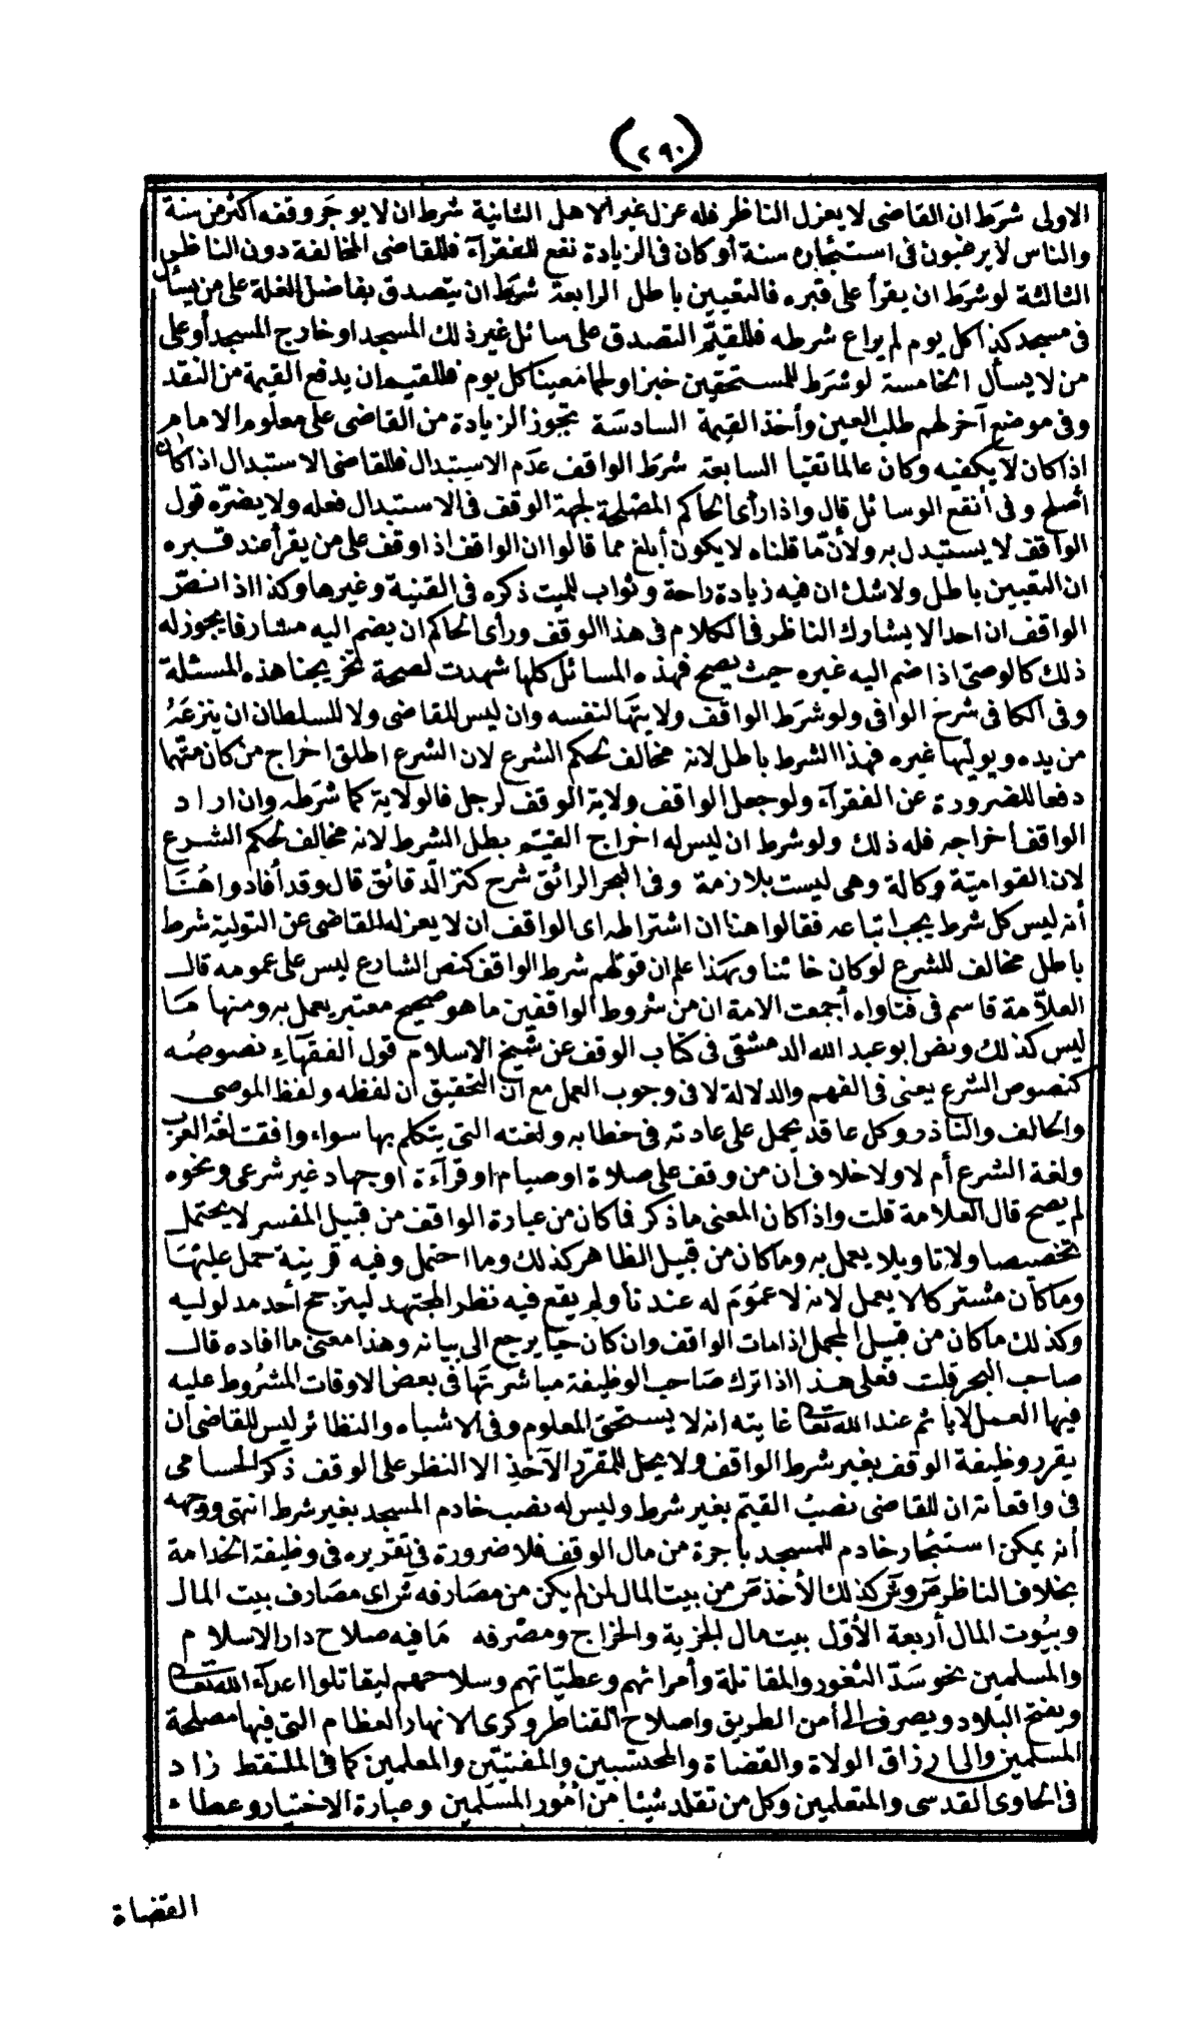 (٢٩٠)
الاولى شرط ان القاضى لا يعزل الناظر فله عزل غير الاهل الثانية شرط ان لا يوجر وقفه اكثر من سنة
والناس لا يرغبون فى استئجاره سنة أو كان فى الزيادة نفع للفقرآء فللقاضى المخالفة دون الناظر
الثالثة لو شرط ان يقرأ على قبره فالتعيين باطل الرابعة شرط ان يتصدق بفاضل الغلة على من يسأل
فى مسجد كذا كل يوم لم يراع شرطه فللقيّم التصدق على سائل غير ذلك المسجد او خارج المسجد أو على
من لا يسأل الخامسة لو شرط للمستحقين خبزا ولحما معينا كل يوم فللقيم ان يدفع القيمة من النقد
وفى موضع آخر لهم طلب العين وأخذ القيمة السادسة تجوز الزيادة من القاضى على معلوم الامام
اذا كان لا يكفيه وكان عالما تقيا السابعة شرط الواقف عدم الاستبدال فللقاضى الاستبدال اذا كان
أصلح وفى أنفع الوسائل قال واذا رأى الحاكم المصلحة لجهة الوقف فى الاستبدال فعله ولا يضرّه قول
الواقف لا يستبدل به ولأنّ ما قلناه لا يكون أبلغ مما قالوا ان الواقف اذا وقف على من يقرأ عند قبره
ان التعيين باطل ولا شك ان فيه زيادة راحة وثواب للميت ذكره فى القنية وغيرها وكذا اذا نصّ
الواقف ان احدا لا يشارك الناظر فى الكلام فى هذا الوقف ورأى الحاكم ان يضم اليه مشارفا يجوز له
ذلك كالوصىّ اذا ضم اليه غيره حيث يصح فهذه المسائل كلها شهدت لصحة تخريجنا هذه المسئلة
وفى الكافى شرح الوافى ولو شرط الواقف ولايتها لنفسه وان ليس للقاضى ولا للسلطان ان ينزعه
من يده ويوليها غيره فهذا الشرط باطل لانه مخالف لحكم الشرع لان الشرع اطلق اخراج من كان متهما
دفعا للضرورة عن الفقرآء ولو جعل الواقف ولاية الوقف لرجل فالولاية كما شرطه وان اراد
الواقف أخراجه فله ذلك ولو شرط ان ليس له اخراج القيّم بطل الشرط لانه مخالف لحكم الشرع
لان القواميّة وكالة وهى ليست بلازمة وفى البحر الرائق شرح كنز الدقائق قال وقد أفادوا هنا
أنه ليس كل شرط يجب اتباعه فقالوا هنا ان اشتراطه اى الواقف ان لا يعزله القاضى عن التولية شرط
باطل مخالف للشرع لو كان خائنا وبهذا علم ان قولهم شرط الواقف كنص الشارع ليس على عمومه قال
العلاّمة قاسم فى فتاواه أجمعت الامة ان من شروط الواقفين ما هو صحيح معتبر يعمل به ومنها ما
ليس كذلك ونص ابو عبد الله الدمشقى فى كتاب الوقف عن شيخ الاسلام قول الفقهاء نصوصه
كنصوص الشرع يعنى فى الفهم والدلالة لا فى وجوب العمل مع ان التحقيق ان لفظه ولفظ الموصى
والحالف والناذر وكل عاقد يحمل على عادته فى خطابه ولغته التى يتكلم بها سواء وافقت لغة العرب
ولغة الشرع أم لا ولا خلاف ان من وقف على صلاة او صيام او قرآءة او جهاد غير شرعى ونحوه
لم يصح قال العلامة قلت واذا كان المعنى ما ذكر فما كان من عبارة الواقف من قبيل المفسر لا يحتمل
تخصيصا ولا تاويلا يعمل به وما كان من قبيل الظاهر كذلك وما احتمل وفيه قرينة حمل عليها
وما كان مشتركا لا يعمل لانه لا عموم له عندنا ولم يقع فيه نظر المجتهد ليترجح أحد مدلوليه
وكذلك ما كان من قبيل المجمل اذا مات الواقف وان كان حيا يرجع الى بيانه وهذا معنى ما افاده قال
صاحب البحر قلت فعلى هذا اذا ترك صاحب الوظيفة مباشرتها فى بعض الاوقات المشروط عليه
فيها العمل لا ياثم عند الله تعالى غايته انه لا يستحق المعلوم وفى الاشباه والنظائر ليس للقاضى أن
يقرر وظيفة الوقف بغير شرط الواقف ولا يحل للمقرر الآخذ الا النظر على الوقف ذكر الحسامى
فى واقعاته ان للقاضى نصب القيّم بغير شرط وليس له نصب خادم المسجد بغير شرط انتهى ووجهه
أنه يمكن استئجار خادم للمسجد باجرة من مال الوقف فلا ضرورة فى تقريره فى وظيفة الخدامة
بخلاف الناظر كذلك الأخذ من بيت المال لمن لم يكن من مصارفه اى مصارف بيت المال
وبيوت المال أربعة الأوّل بيت مال الجزية والخراج ومصرفه ما فيه صلاح دار الاسلام
والمسلمين نحو سدّ الثغور والمقاتلة وأمرائهم وعطيّاتهم وسلاحهم ليقاتلوا اعدآء الله تعالى
ويفتح البلاد ويصرف الى أمن الطريق واصلاح القناطر وكرى الانهار العظام التى فيها مصلحة
المسلمين والى ارزاق الولاة والقضاة والمحتسبين والمفتيّين والمعلمين كما فى الملتقط زاد
فى الحاوى القدسى والمتعلمين وكل من تقلد شيئا من أمور المسلمين وعبارة الاختيار وعطاء
القضاة